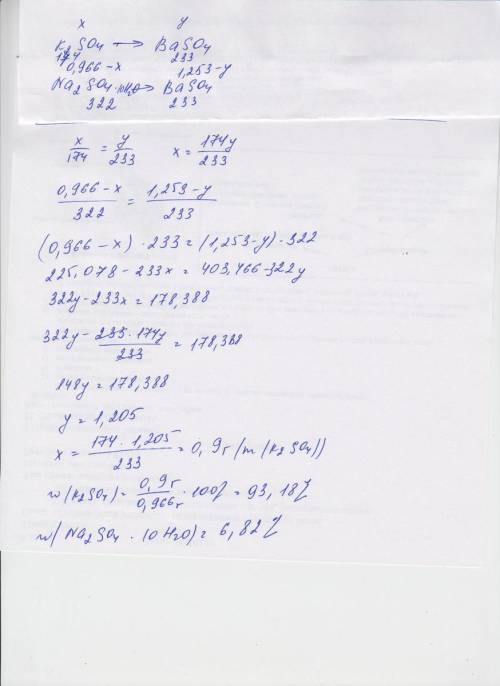 x y
K2SO4 → BaSO4
174 233
0,966-x 1,253-y
Na2SO4·10H2O → BaSO4
322 233
x/174 = y/233 x = 174y/233
0,966-x/322 = 1,253-y/233
(0,966-x)·233=(1,253-y)·322
225,078-233x=403,466-322y
322y-233x=178,388
322y-233·174y/233=178,388
148y=178,388
y=1,205
x=174·1,205/233=0,9г (m(K2SO4))
w(K2SO4)=0,9г/0,966г·100%=93,18%
w(Na2SO4·10H2O)=6,82%